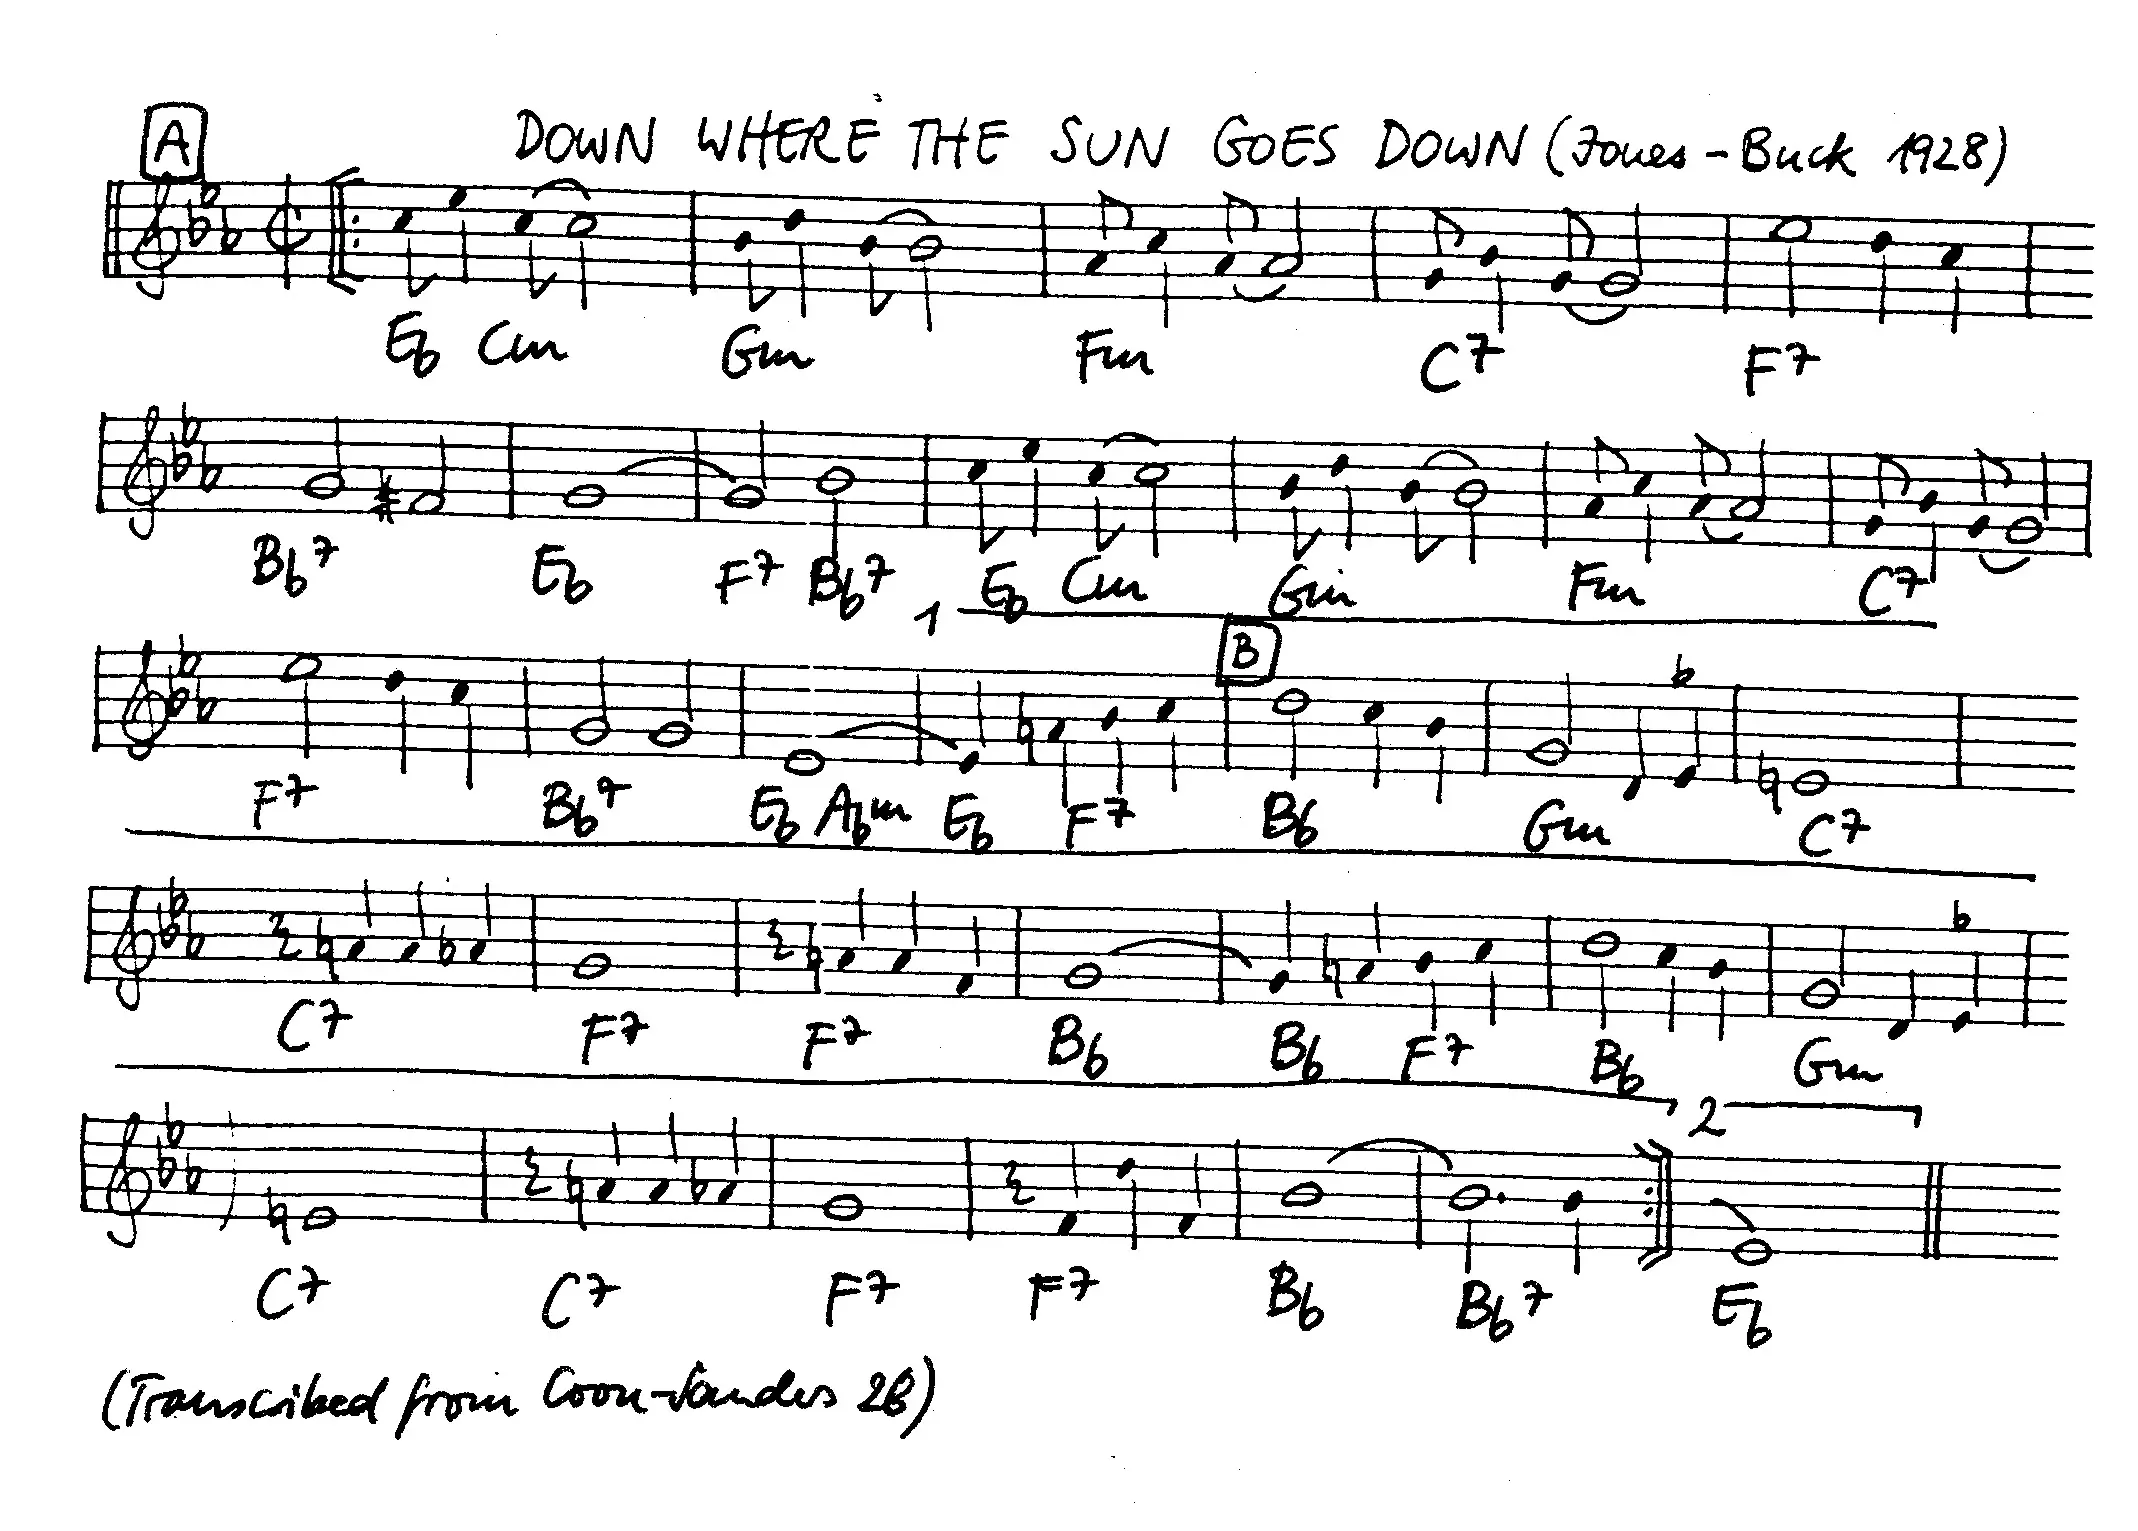 A
DOWN WHERE THE SUN GOES DOWN (Jones - Buck 1928)
Eb Cm Gm Fm C7 F7
Bb7 Eb F7 Bb7 Eb Cm Gm Fm C7
1
B
F7 Bb7 Eb Abm Eb F7 Bb Gm C7
C7 F7 F7 Bb Bb F7 Bb Gm
2
C7 C7 F7 F7 Bb Bb7 Eb
(Transcribed from Coon-Sanders 28)